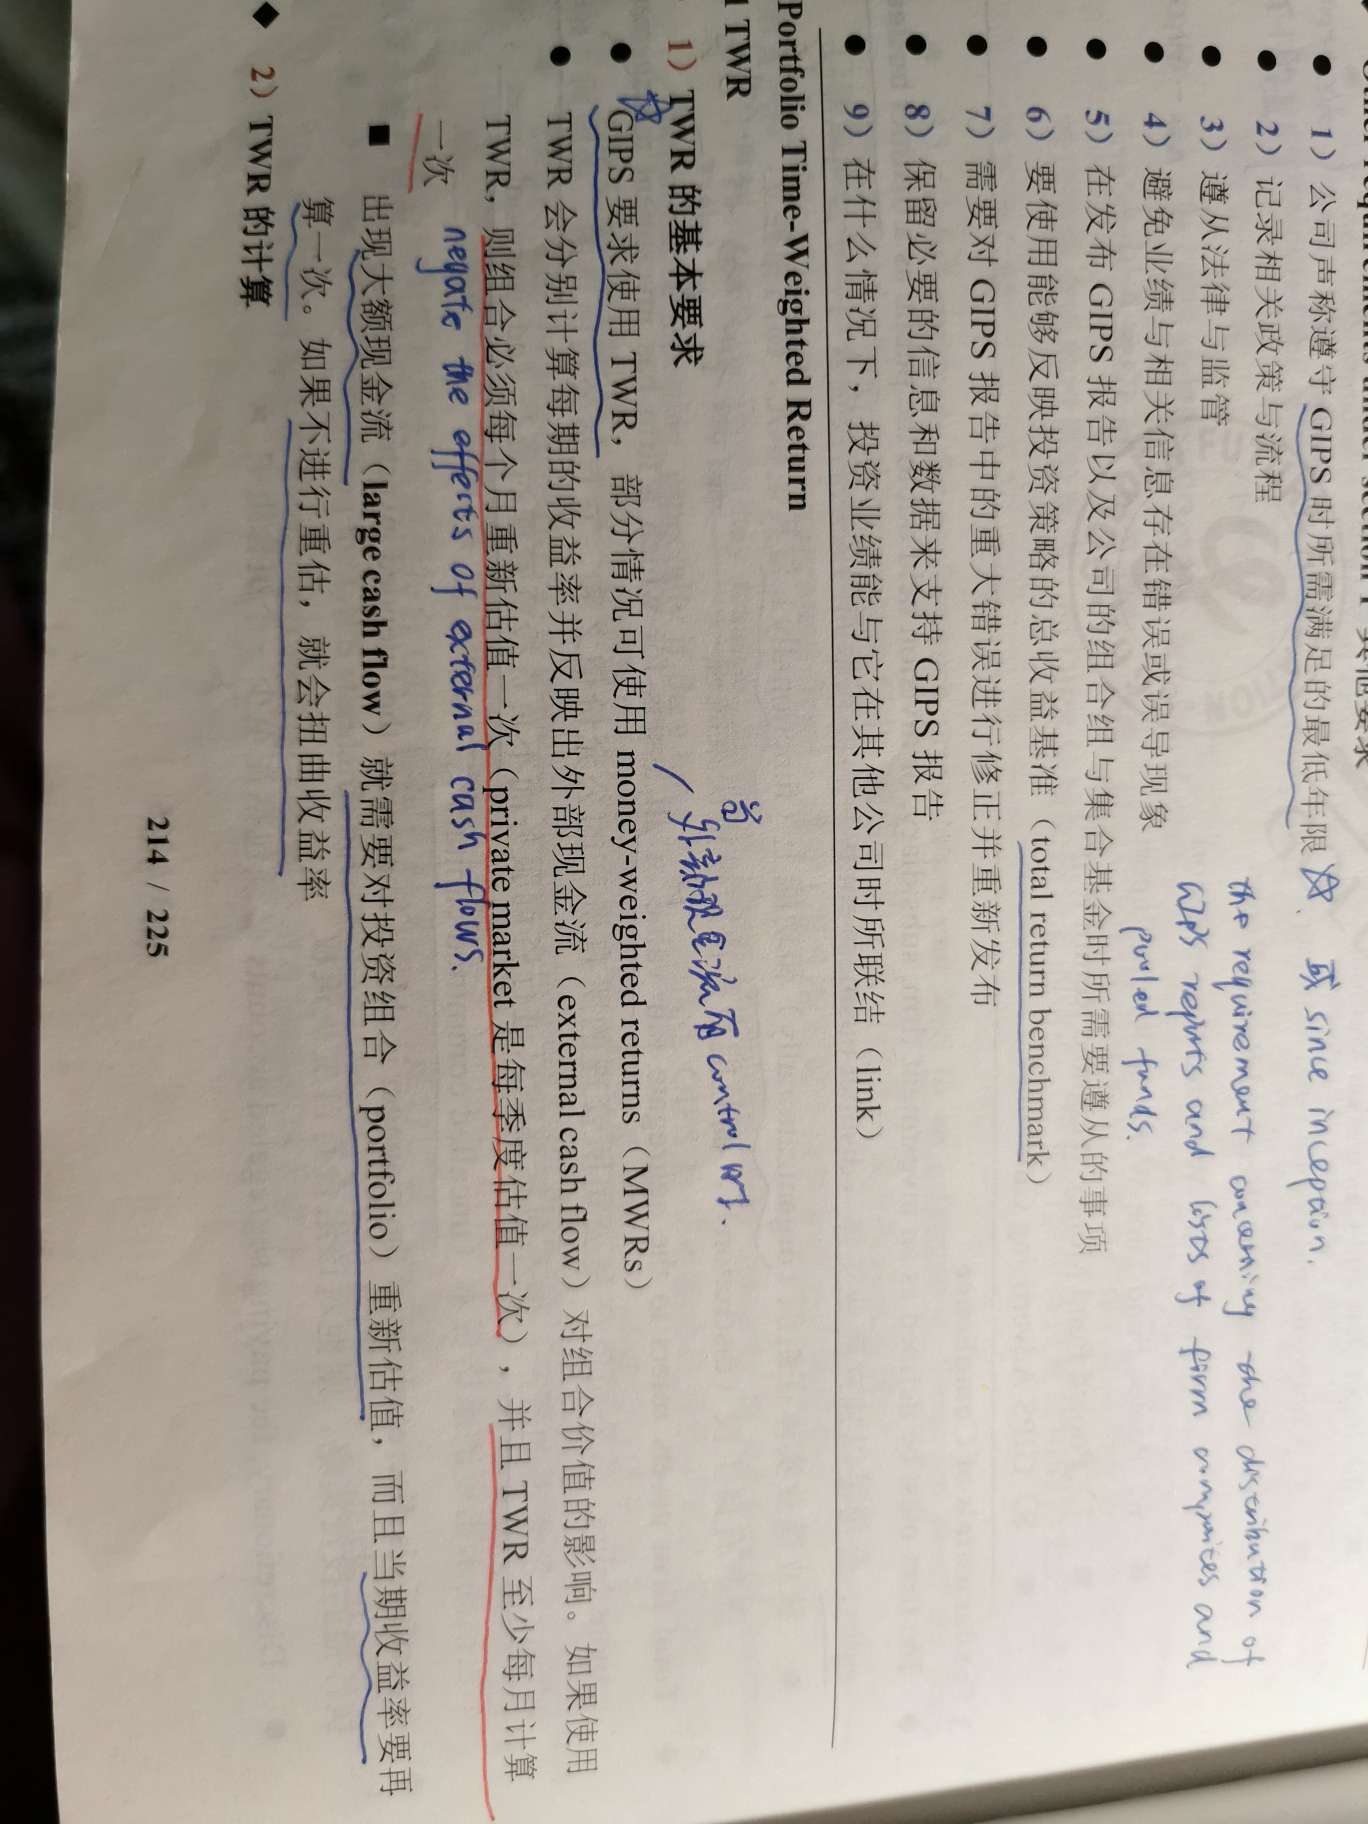 • 1）公司声称遵守 GIPS 时所需满足的最低年限 ☆. 或 since inception.
• 2）记录相关政策与流程
the requirement concerning the distribution of
• 3）遵从法律与监管
GIPS reports and lists of firm composites and
• 4）避免业绩与相关信息存在错误或误导现象
pooled funds.
• 5）在发布 GIPS 报告以及公司的组合组与集合基金时所需要遵从的事项
• 6）要使用能够反映投资策略的总收益基准（total return benchmark）
• 7）需要对 GIPS 报告中的重大错误进行修正并重新发布
• 8）保留必要的信息和数据来支持 GIPS 报告
• 9）在什么情况下，投资业绩能与它在其他公司时所联结（link）
Portfolio Time-Weighted Return
TWR
当
外部现金流有 control 时.
1）TWR 的基本要求
• ☆ GIPS 要求使用 TWR，部分情况可使用 money-weighted returns（MWRs）
• TWR 会分别计算每期的收益率并反映出外部现金流（external cash flow）对组合价值的影响。如果使用
TWR，则组合必须每个月重新估值一次（private market 是每季度估值一次），并且 TWR 至少每月计算
一次 negate the effects of external cash flows.
■ 出现大额现金流（large cash flow）就需要对投资组合（portfolio）重新估值，而且当期收益率要再
算一次。如果不进行重估，就会扭曲收益率
◆ 2）TWR 的计算
214 / 225